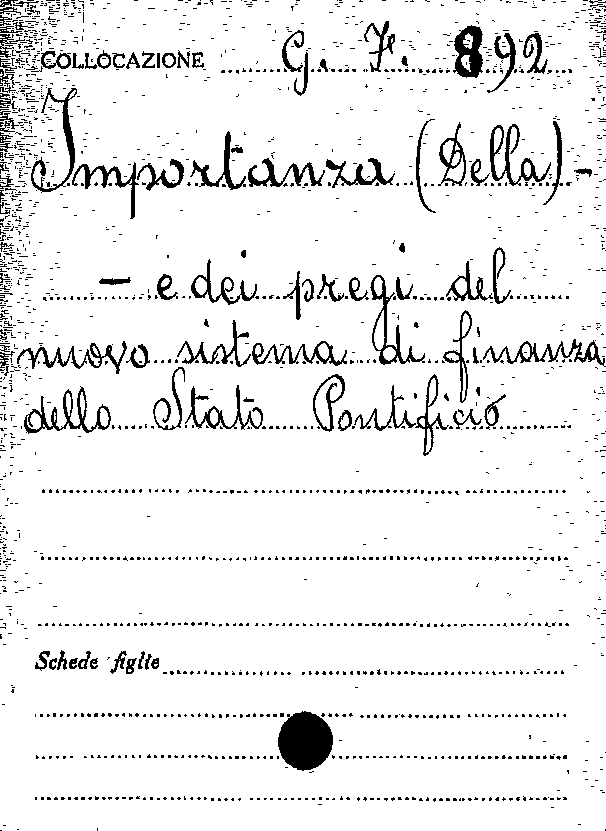 COLLOCAZIONE G. F. 892
Importanza (Della) -
- e dei pregi del
nuovo sistema di finanza
dello Stato Pontificio
Schede figlie